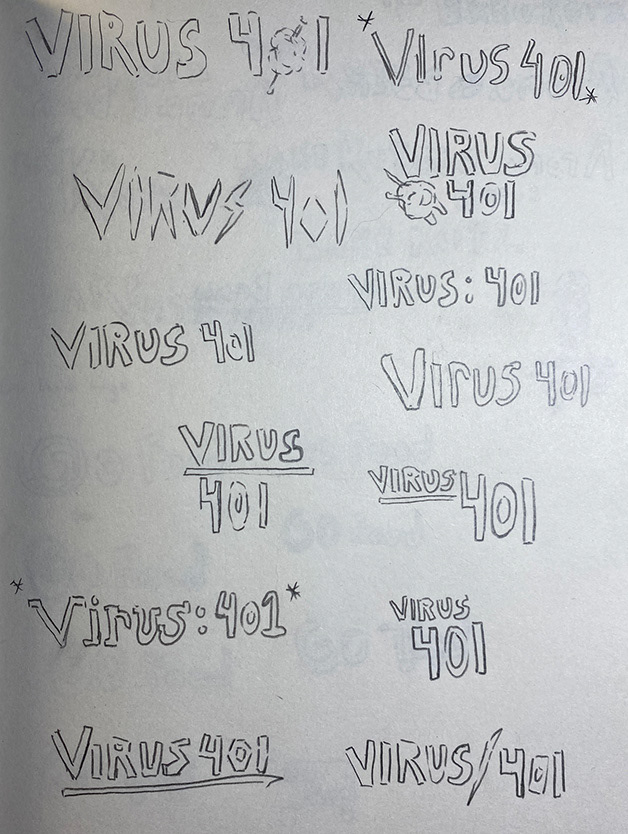 VIRUS 401
*Virus 401*
VIRUS
401
VIRUS 401
VIRUS: 401
VIRUS 401
Virus 401
VIRUS
401
VIRUS 401
*Virus:401*
VIRUS
401
VIRUS 401
VIRUS/401